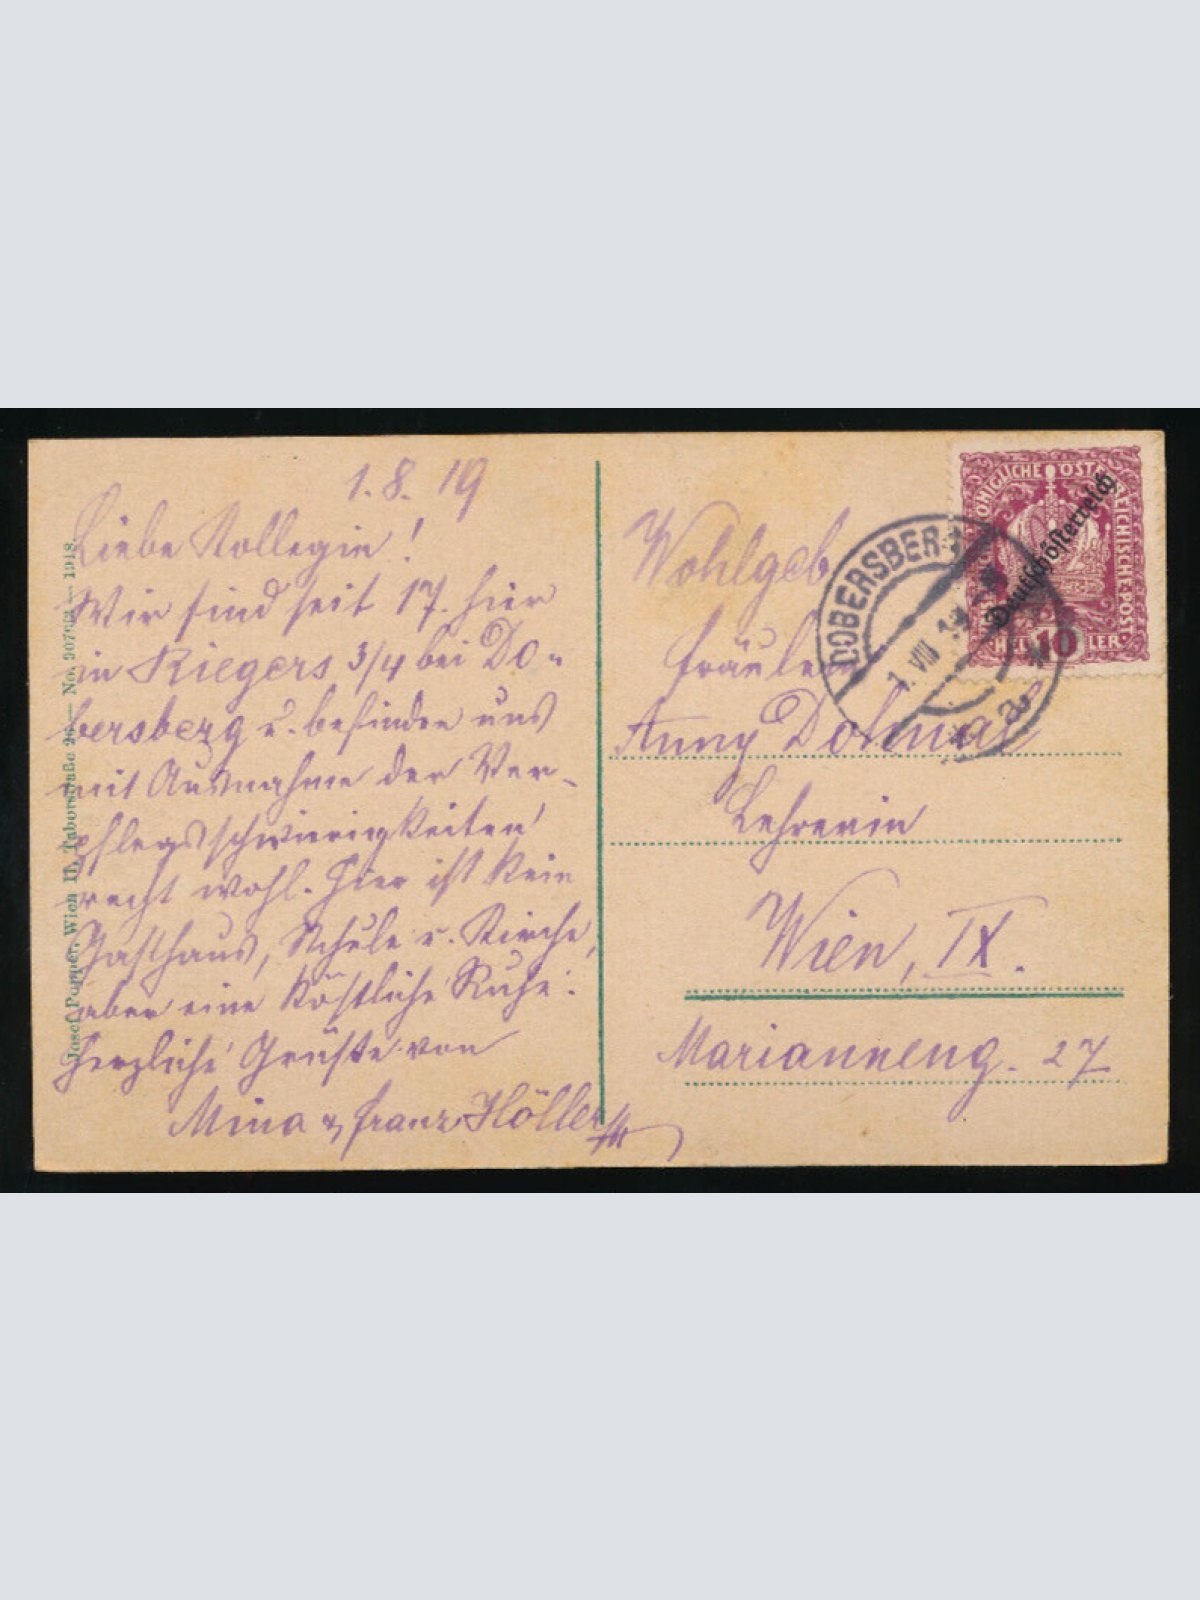 1. 8. 19
Liebe Kollegin!
Wir sind seit 17. hier
in Riegers 3/4 bei Do-
bersberg u. befinden uns
mit Ausnahme der Ver-
pflegsschwierigkeiten
recht wohl. Hier ist kein
Gasthaus, Schule u. Kirche,
aber eine köstliche Ruhe.
Herzliche Grüße von
Mina & Franz Höller
Josef Popper, Wien II, Taborstraße 26 — No. — 1918.
Wohlgeb
Fräulein
Anny
Lehrerin
Wien, IX.
Marianneng. 27
KÖNIGLICHE ÖSTERREICHISCHE POST
Deutschösterreich
HELLER
10
DOBERSBERG
1. VIII 19
a